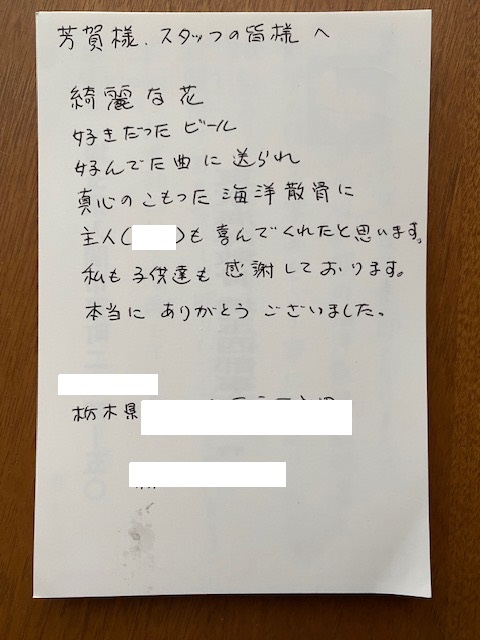 芳賀様、スタッフの皆様へ
綺麗な花
好きだったビール
好んでた曲に送られ
真心のこもった海洋散骨に
主人( )も喜んでくれたと思います。
私も子供達も感謝しております。
本当にありがとうございました。
栃木県